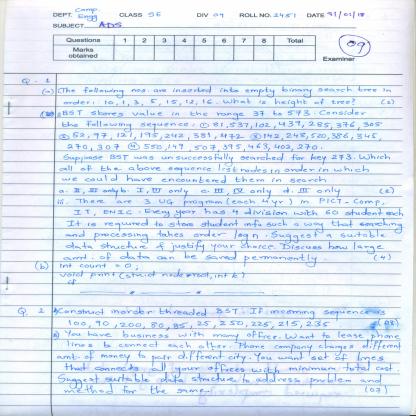 DEPT. Comp. Engg CLASS SE DIV 09 ROLL NO. 2451 DATE 31/01/18
SUBJECT ADS
Questions 1 2 3 4 5 6 7 8 Total
Marks obtained
09
Examiner
Q. 1
(a) The following nos. are inserted into empty binary search tree in
order: 10, 1, 3, 5, 15, 12, 16. What is height of tree? (2)
BST stores value in the range 37 to 573. Consider
the following sequence. ① 81, 537, 102, 439, 285, 376, 305
② 52, 97, 121, 195, 242, 381, 472 ③ 142, 248, 520, 386, 345
270, 307 ④ 550, 149, 507, 395, 463, 402, 270.
Suppose BST was unsuccessfully searched for key 273. Which
all of the above sequence list nodes in order in which
we could have encountered them in search
a. II, III only b. I, III only c. III, IV only d. III only (2)
iii. There are 3 UG program (each 4 yr) in PICT - Comp,
IT, ENTC. Every year has 4 division with 60 student each
It is required to store student info such a way that searching
and processing takes order log n. Suggest a suitable
data structure & justify your choice. Discuss how large
amt. of data can be saved permanently (4)
(b) int count = 0;
void print (struct node *root, int k)
Q. 2 a) Construct inorder threaded BST. If incoming sequence is
100, 90, 200, 80, 85, 25, 250, 225, 215, 235
b) You have business with many office. Want to lease phone
lines to connect each other. Phone company charges different
amt of money to pair different city. You want set of lines
that connects all your offices with minimum total cost.
Suggest suitable data structure to address problem and
method for the same. (03)